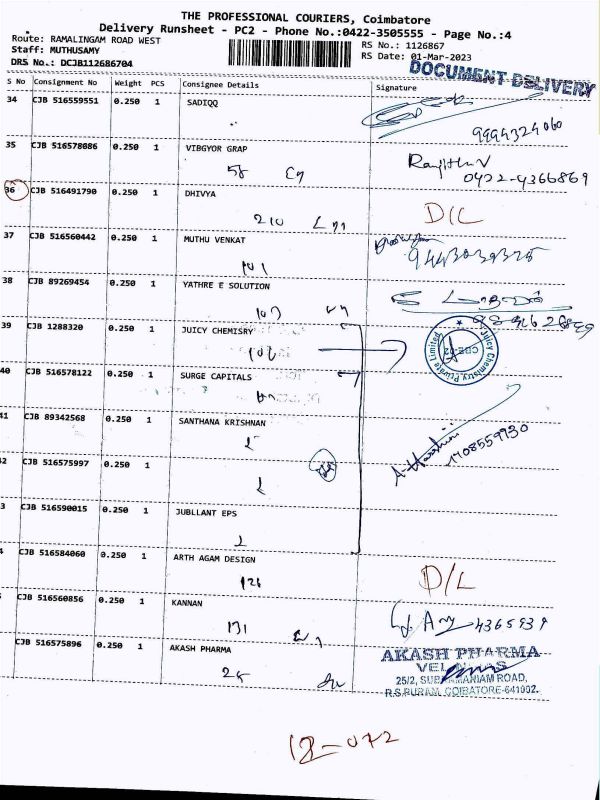 THE PROFESSIONAL COURIERS, Coimbatore
Delivery Runsheet - PC2 - Phone No.:0422-3505555 - Page No.:4
Route: RAMALINGAM ROAD WEST
Staff: MUTHUSAMY
DRS No.: DCJB112686704
RS No.: 1126867
RS Date: 01-Mar-2023
DOCUMENT DELIVERY
S No Consignment No Weight PCS Consignee Details Signature
34 CJB 516559551 0.250 1 SADIQQ
9994324060
35 CJB 516578086 0.250 1 VIBGYOR GRAP
58
Ranjithu V
0422-4366869
36 CJB 516491790 0.250 1 DHIVYA
210
D/L
37 CJB 516560442 0.250 1 MUTHU VENKAT
101
38 CJB 89269454 0.250 1 YATHRE E SOLUTION
103
39 CJB 1288320 0.250 1 JUICY CHEMISRY
102
Juicy Chemistry Private Limited
CBE-02
40 CJB 516578122 0.250 1 SURGE CAPITALS
41 CJB 89342568 0.250 1 SANTHANA KRISHNAN
2 CJB 516575997 0.250 1
3 CJB 516590015 0.250 1 JUBLLANT EPS
4 CJB 516584060 0.250 1 ARTH AGAM DESIGN
126
D/L
CJB 516560856 0.250 1 KANNAN
131
4365939
CJB 516575896 0.250 1 AKASH PHARMA
AKASH PHARMA
25/2, SUBRAMANIAM ROAD,
R.S.PURAM, COIBATORE-641002.
12-072